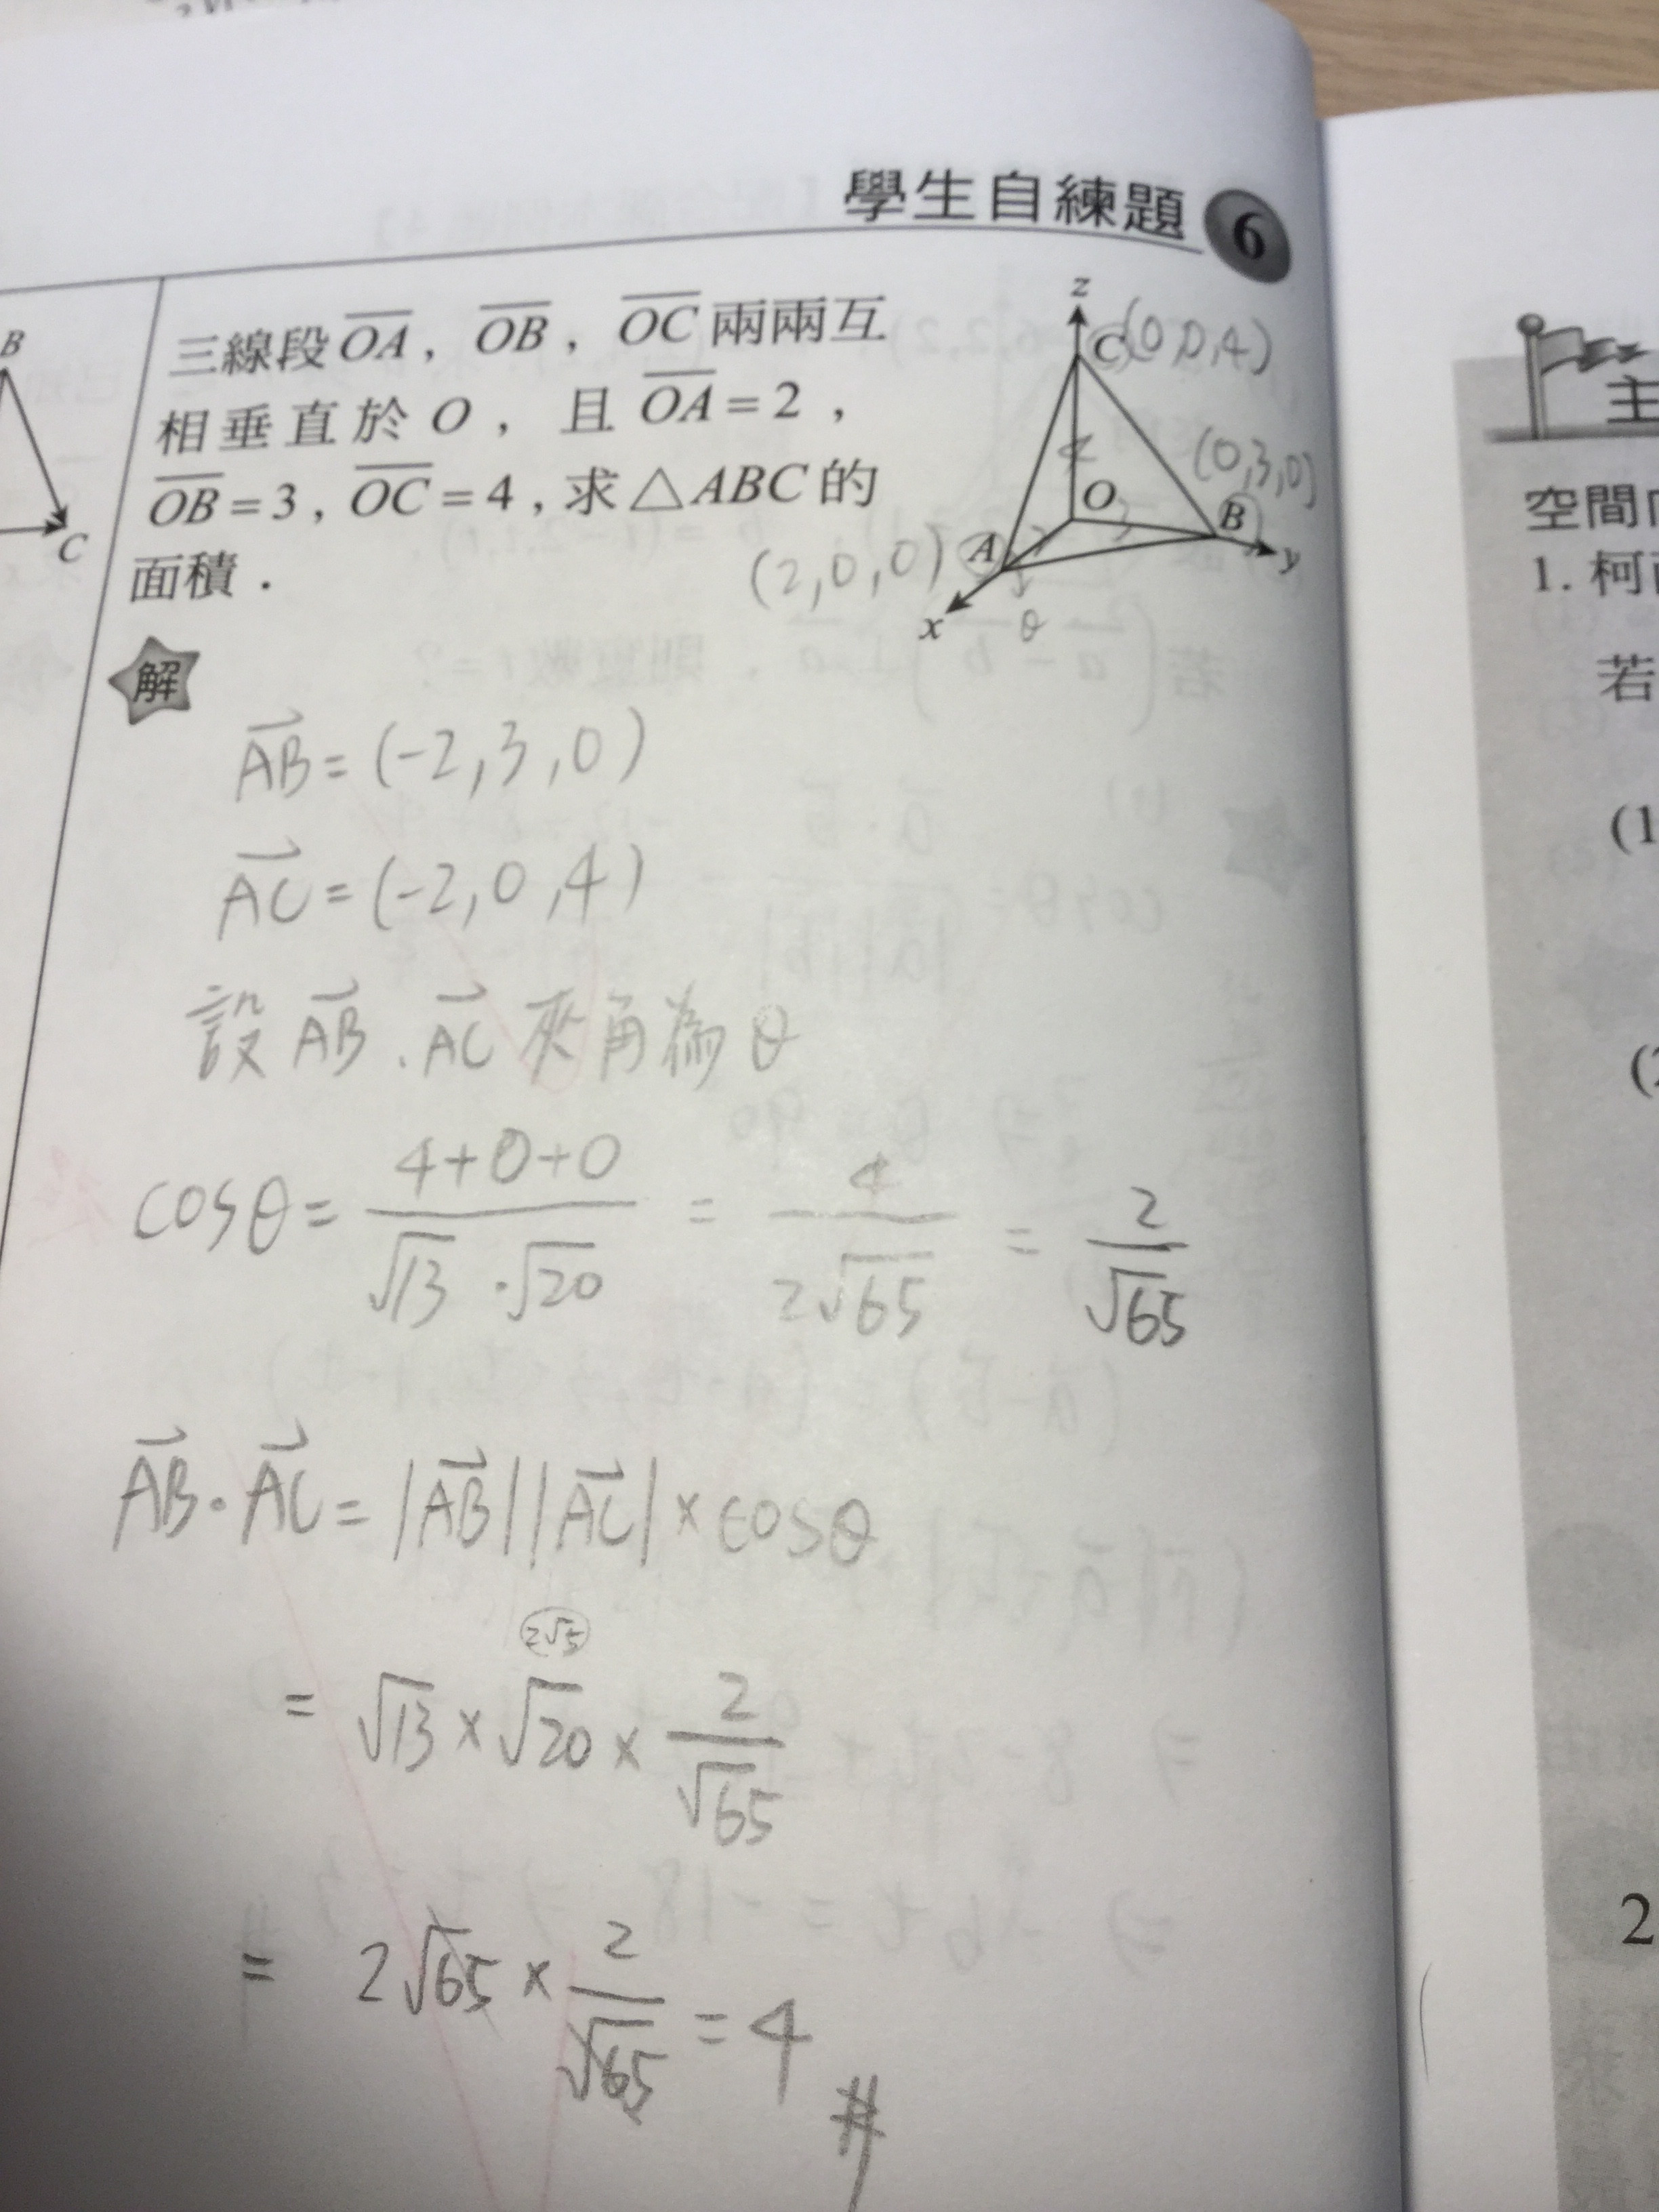 學生自練題 6
三線段 OA , OB , OC 兩兩互
相垂直於 O , 且 OA = 2 ,
OB = 3 , OC = 4 , 求 △ABC 的
面積 .
z
C (0,0,4)
4
(0,3,0)
O
3
B
y
(2,0,0) A
2
x
θ
B
C
解
AB = (-2,3,0)
AC = (-2,0,4)
設 AB . AC 夾角為 θ
cosθ = 4+0+0 / √13 · √20 = 4 / 2√65 = 2 / √65
AB · AC = |AB||AC| × cosθ
2√5
= √13 × √20 × 2 / √65
= 2√65 × 2 / √65 = 4 #
主
空間
1. 柯
若
(1
(2
2
求